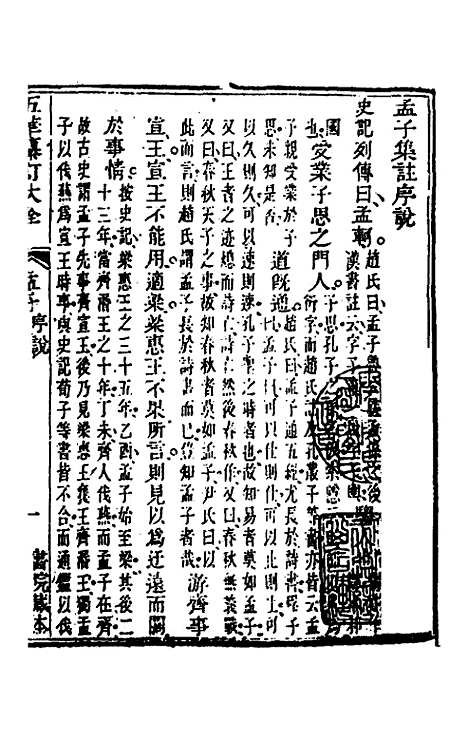 孟子集註序說
史記列傳曰孟軻
趙氏曰孟子
漢書註云字子
國
也受業子思之門人
子思孔子之
衍字而趙氏
叢子等書亦皆云孟
子親受業於子
思未知是否
道旣通
趙氏曰孟子通五經尤長於詩書程子
曰孟子曰可以仕則仕可以止則止可
以久則久可以速則速孔子聖之時者也故知易者莫如孟子
又曰王者之迹熄而詩亡詩亡然後春秋作又曰春秋無義戰
又曰春秋天子之事故知春秋者莫如孟子尹氏曰以
此而言則趙氏謂孟子長於詩書而已豈知孟子者哉
游齊事
宣王宣王不能用適梁梁惠王不果所言則見以為迂遠而闊
於事情
按史記梁惠王之三十五年乙酉孟子始至梁其後二
十三年當齊湣王之十年丁未齊人伐燕而孟子在齊
故古史謂孟子先事齊宣王後乃見梁惠王襄王齊湣王獨孟
子以伐燕為宣王時事與史記荀子等書皆不合而通鑑以伐
大全
孟子序說
一
書院藏本